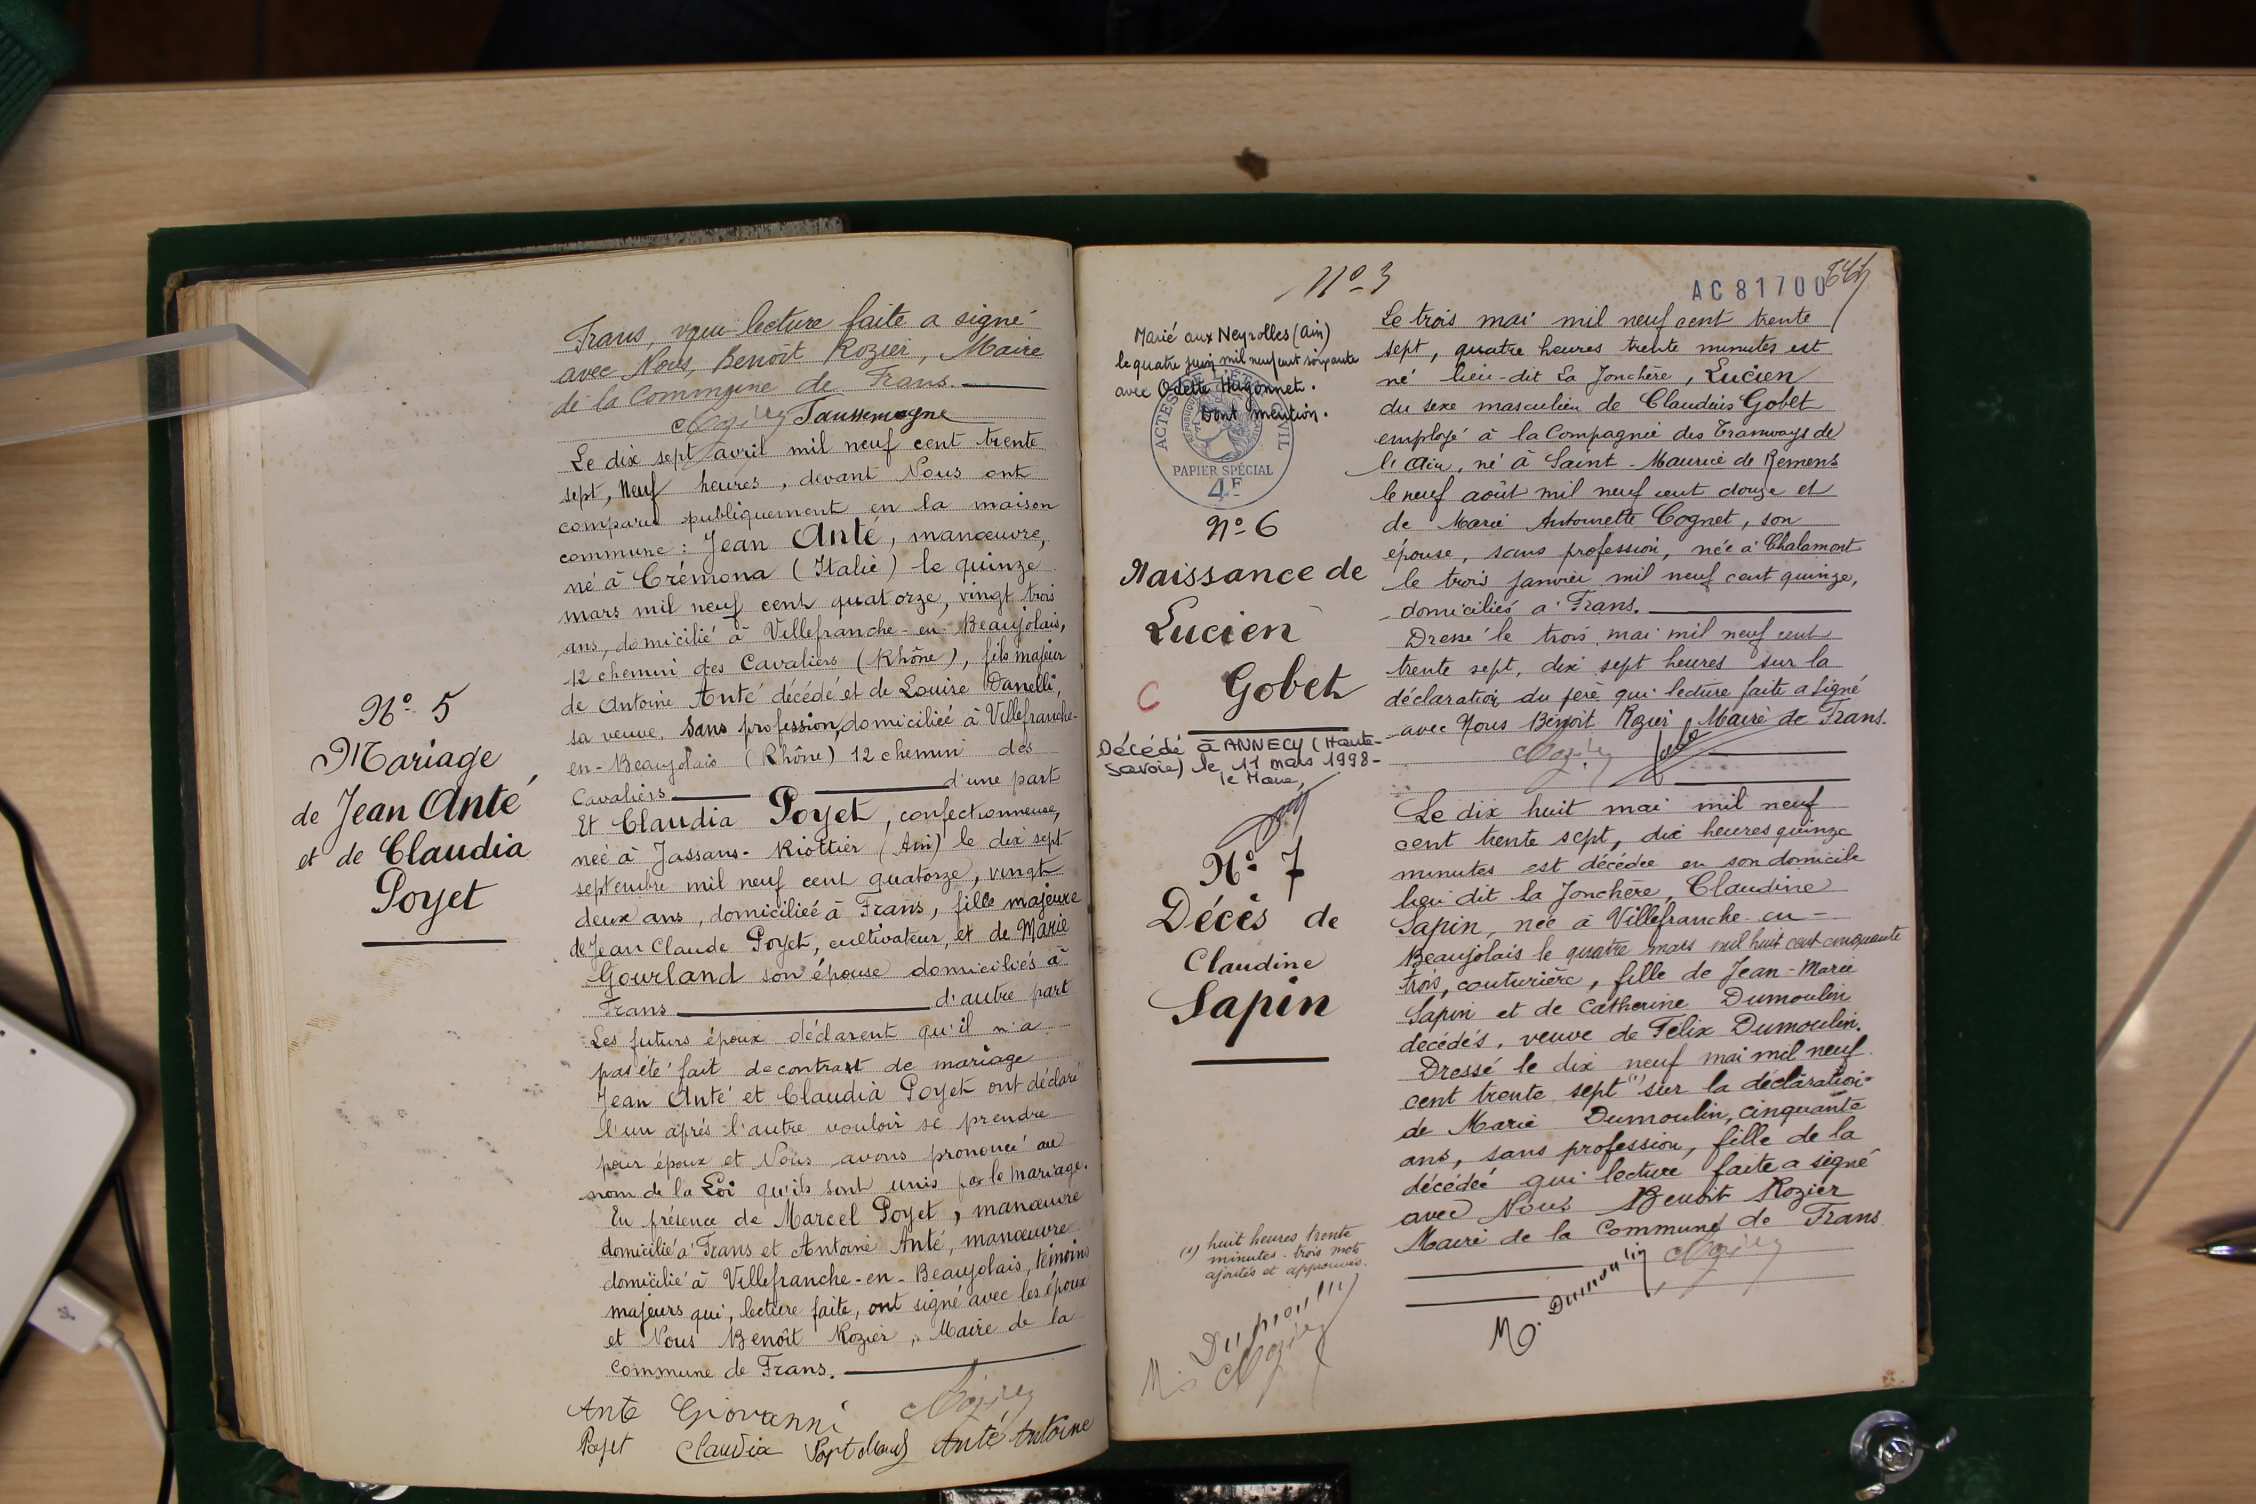 Frans, que lecture faite a signé
avec Nous, Benoît Rozier, Maire
de la Commune de Frans.
Taussemagne
Le dix sept avril mil neuf cent trente
sept, Neuf heures, devant Nous ont
comparu publiquement en la maison
commune : Jean Anté, manœuvre,
né à Crémona (Italie) le quinze
mars mil neuf cent quatorze, vingt trois
ans, domicilié à Villefranche-en-Beaujolais,
12 chemin des Cavaliers (Rhône), fils majeur
de Antoine Anté décédé et de Louise Danelli,
sa veuve, sans profession, domiciliée à Villefranche-
en-Beaujolais (Rhône) 12 chemin des
Cavaliers d'une part
Et Claudia Poyet, confectionneuse,
née à Jassans-Riottier (Ain) le dix sept
septembre mil neuf cent quatorze, vingt
deux ans, domiciliée à Frans, fille majeure
de Jean Claude Poyet, cultivateur, et de Marie
Gourland son épouse domiciliés à
Frans d'autre part
Les futurs époux déclarent qu'il n'a
pas été fait de contrat de mariage
Jean Anté et Claudia Poyet ont déclaré
l'un après l'autre vouloir se prendre
pour époux et Nous avons prononcé au
nom de la Loi qu'ils sont unis par le mariage.
En présence de Marcel Poyet, manœuvre
domicilié à Frans et Antoine Anté, manœuvre
domicilié à Villefranche-en-Beaujolais, témoins
majeurs qui, lecture faite, ont signé avec les époux
et Nous Benoît Rozier, Maire de la
commune de Frans.
Ante Giovanni Rozier
Poyet Claudia Anté Antoine
N° 5
Mariage
de Jean Anté
et de Claudia
Poyet
N° 3
AC 81700
Marié aux Neyrolles (Ain)
le quatre juin mil neuf cent soixante
avec Odette Hugonnet.
Dont mention.
ACTES DE L'ÉTAT CIVIL
PAPIER SPÉCIAL
4F
N° 6
Naissance de
Lucien
Gobet
C
Décédé à ANNECY (Haute-
Savoie) le 11 mars 1998-
le Maire,
N° 7
Décès de
Claudine
Sapin
(1) huit heures trente
minutes. trois mots
ajoutés et approuvés.
M. Dumoulin
Rozier
Le trois mai mil neuf cent trente
sept, quatre heures trente minutes est
né lieu-dit La Jonchère, Lucien
du sexe masculin de Claudius Gobet
employé à la Compagnie des Tramways de
l'Ain, né à Saint-Maurice de Remens
le neuf août mil neuf cent douze et
de Marie Antoinette Cognet, son
épouse, sans profession, née à Chalamont
le trois janvier mil neuf cent quinze,
domiciliés à Frans.
Dressé le trois mai mil neuf cent
trente sept, dix sept heures sur la
déclaration du père qui lecture faite a signé
avec Nous Benoit Rozier Maire de Frans.
Rozier
Le dix huit mai mil neuf
cent trente sept, dix heures quinze
minutes est décédée en son domicile
lieu dit la Jonchère, Claudine
Sapin, née à Villefranche-en-
Beaujolais le quatre mars mil huit cent cinquante
trois, couturière, fille de Jean-Marie
Sapin et de Catherine Dumoulin
décédés, veuve de Félix Dumoulin.
Dressé le dix neuf mai mil neuf
cent trente sept (1) sur la déclaration
de Marie Dumoulin, cinquante
ans, sans profession, fille de la
décédée qui lecture faite a signé
avec Nous Benoit Rozier
Maire de la Commune de Frans
M. Dumoulin Rozier